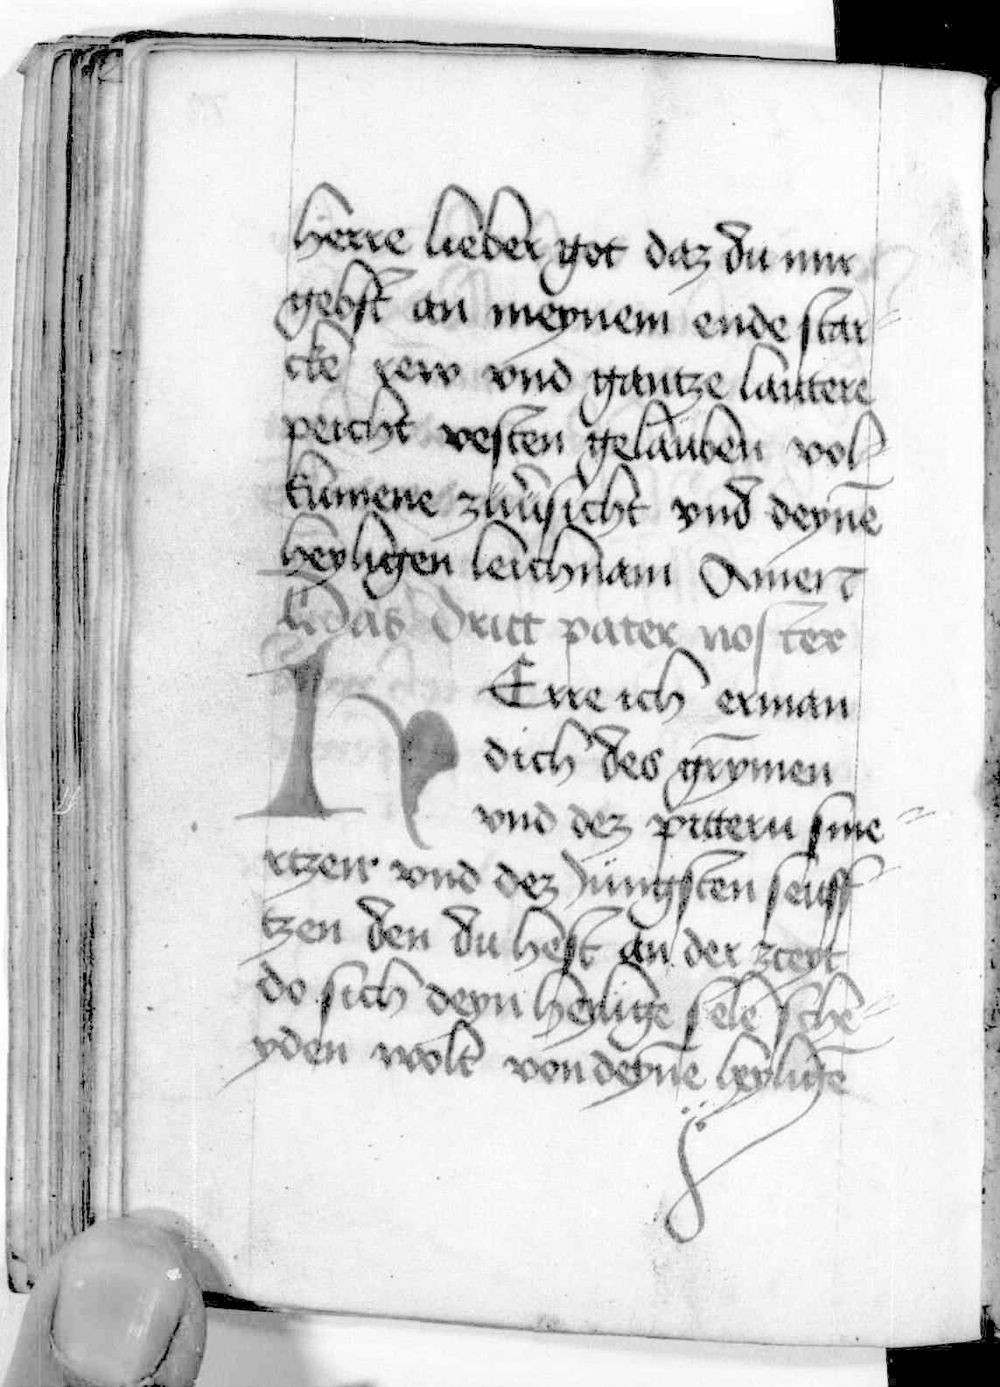 herre lieber got daz du mir
gebst an meynem ende star-
cke rew vnd gantze lautere
peicht vesten gelauben vol-
kumene zuu͂sicht vnd deyne͂
heyligen leichnam Amen
Das dritt pater noster
HErre ich erman
dich des grymen
vnd dez pittern sme-
rtzen vnd dez Jungsten seuff-
tzen den du hest an der zceyt
do sich deyn heylige sele sche-
yden wolt von deyne͂ heylige͂